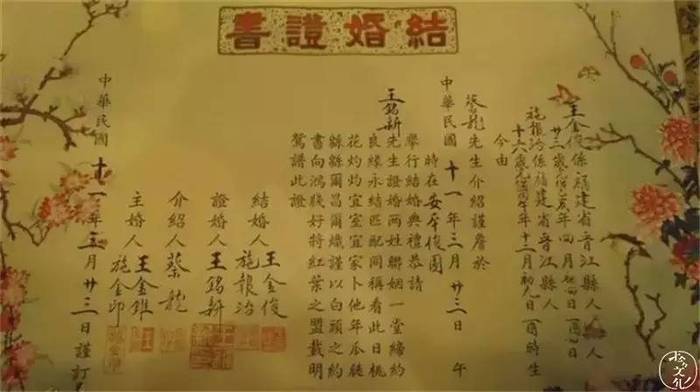 結婚證書
王金俊係福建省晉江縣人
廿三歲
月
日
時生
施報治係福建省晉江縣人
十六歲
年十二月初九日酉時生
今由
蔡龍先生介紹謹詹於
中華民國十一年三月廿三日 午
時在安平俊園
舉行結婚典禮恭請
王銘新先生證婚兩姓聯姻一堂締約
良緣永結匹配同稱看此日桃
花灼灼宜室宜家卜他年瓜瓞
緜緜爾昌爾熾謹以白頭之約
書向鴻箋好將紅葉之盟載明
鴛譜此證
結婚人王金俊
施報治
證婚人王銘新
介紹人蔡龍
主婚人王金錐
施金印
中華民國十一年三月廿三日謹訂